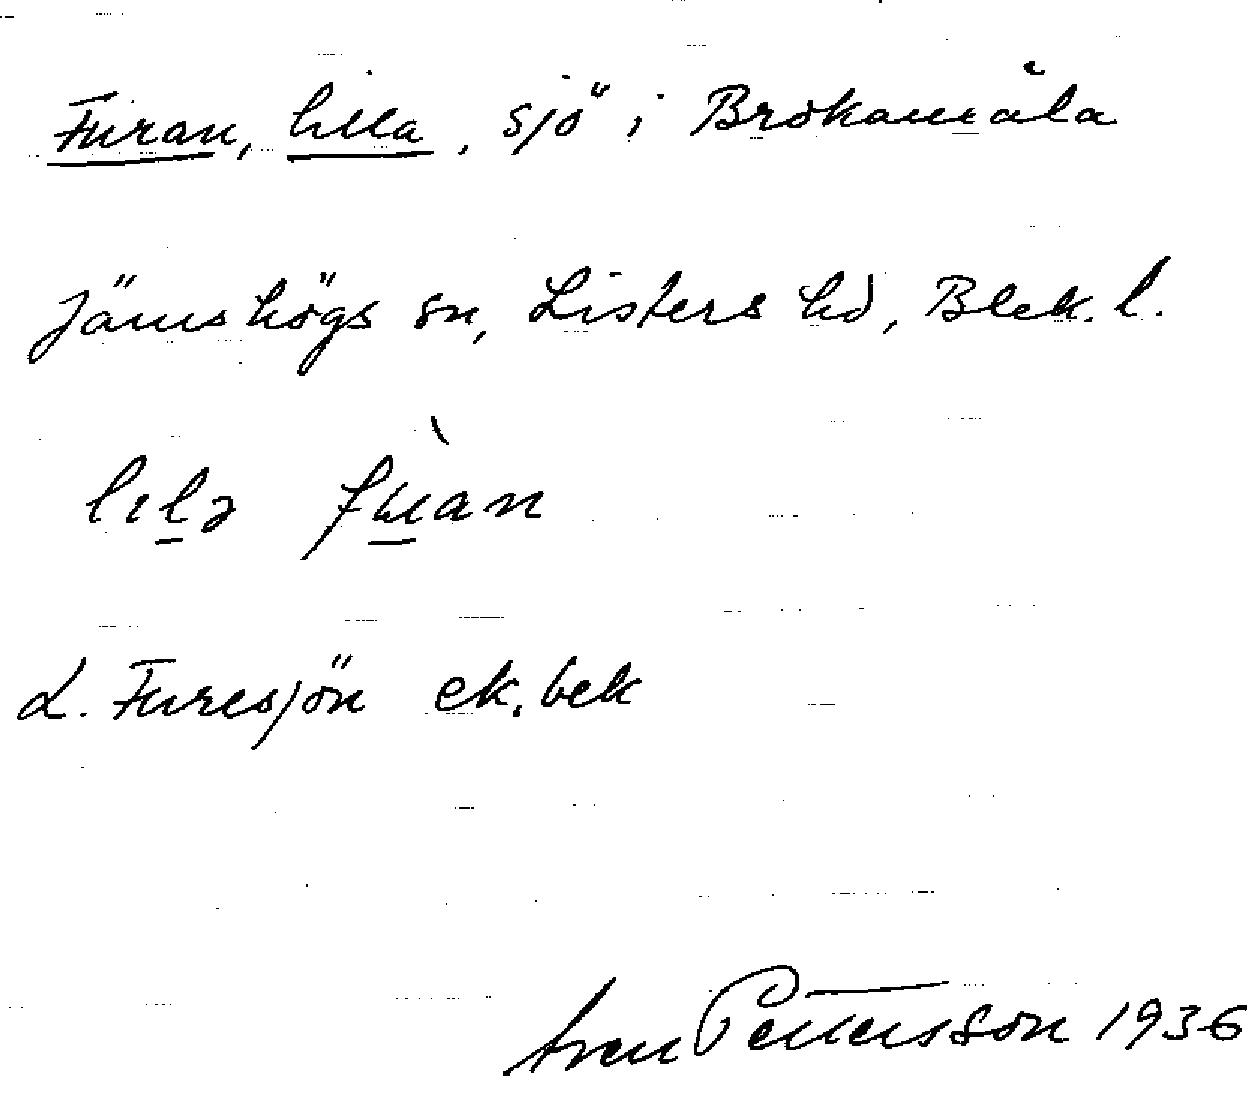 Furan, lilla, sjö i Brokamåla
Jämshögs sn, Listers hd, Blek. l.
lılə
L. Furesjön ek. bek
Sven Pettersson 1936